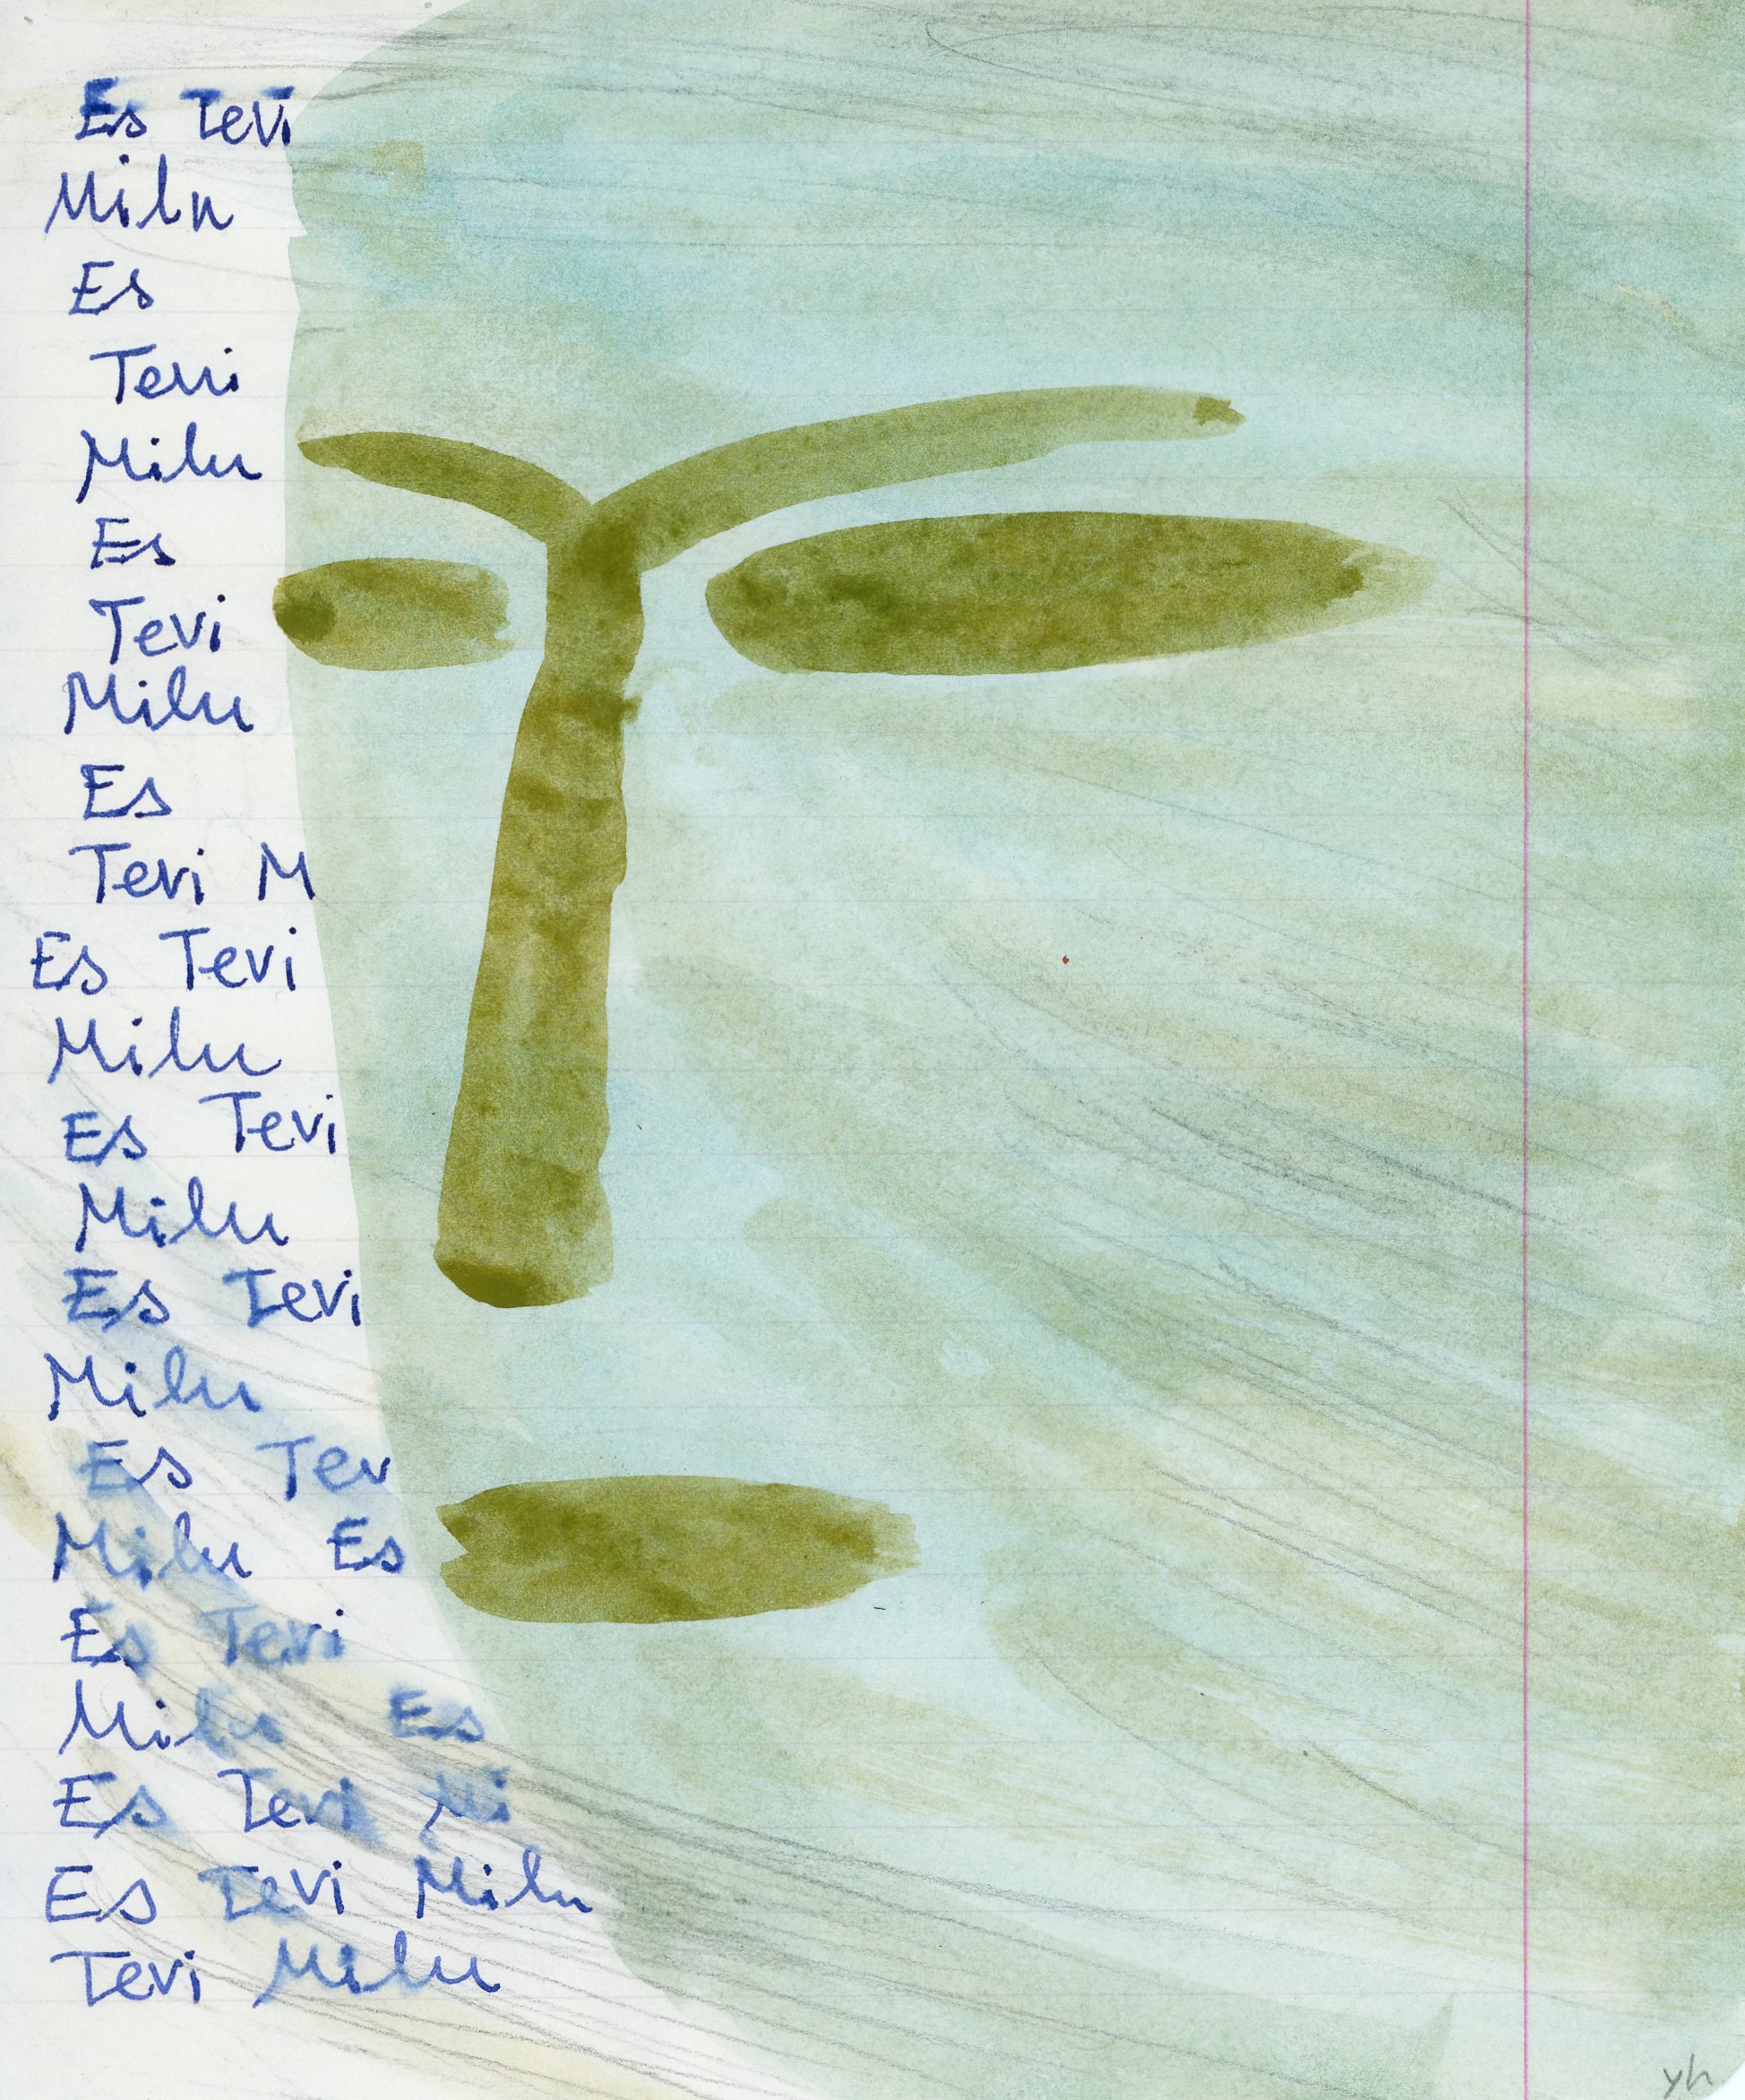 Es Tevi
Milu
Es
Tevi
Milu
Es
Tevi
Milu
Es
Tevi M
Es Tevi
Milu
Es Tevi
Milu
Es Tevi
Milu
Es Tev
Milu Es
Es Tevi
Milu Es
Es Tevi Mi
Es Tevi Milu
Tevi Milu
yh